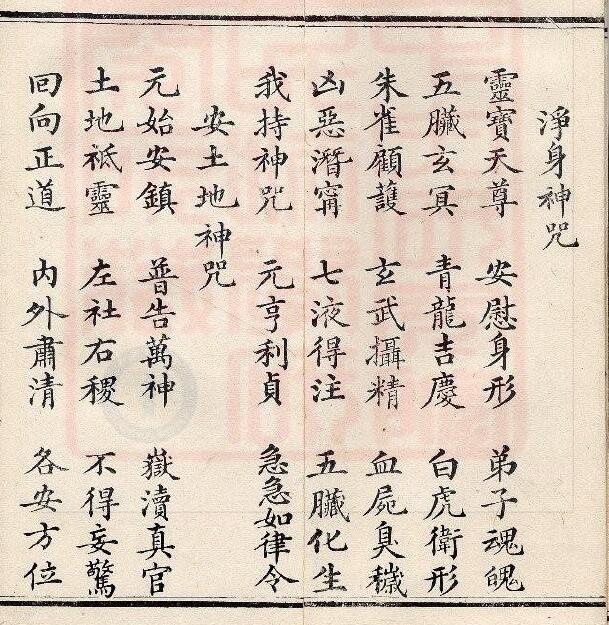 淨身神咒
靈寶天尊 安慰身形 弟子魂魄
五臟玄冥 青龍吉慶 白虎衛形
朱雀顧護 玄武攝精 血屍臭穢
凶惡潛甯 七液得注 五臟化生
我持神咒 元亨利貞 急急如律令
安土地神咒
元始安鎮 普告萬神 嶽瀆真官
土地祗靈 左社右稷 不得妄驚
回向正道 內外肅清 各安方位